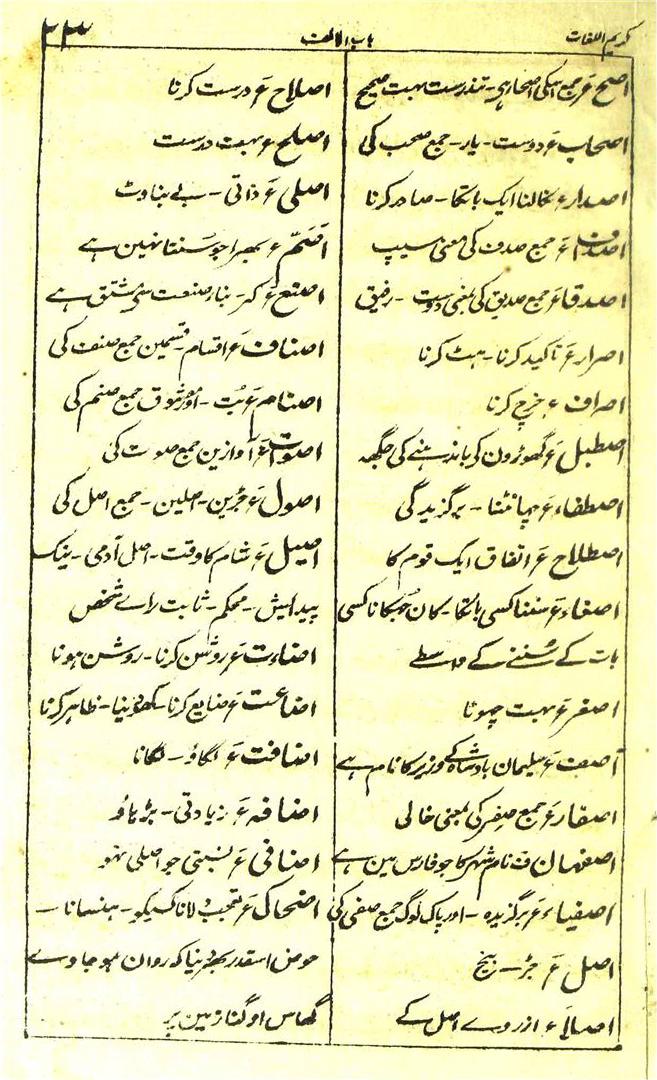 کریم اللغات
باب الالف
۲۳
اصح ع جمع اسکی اصحا ہی۔ تندرست بہت صحیح
اصحاب ع دوست۔ یار۔ جمع صحب کی
اصدار ع نکالنا ایک بات کا۔ صادر کرنا
اصداف ع جمع صدف کی معنی سیپ
اصدقا ع جمع صدیق کی بمعنی دوست۔ رفیق
اصرار ع تاکید کرنا۔ ہٹ کرنا
اصراف ع خرچ کرنا
اصطبل ع گھوڑون کی باندہنے کی جگہہ
اصطفاء ع چہانٹنا۔ برگزیدگی
اصطلاح ع اتفاق ایک قوم کا
اصغاء ع سننا کسی بات کا۔ کان جھکانا کسی
بات کے سُننے کے واسطے
اصغر ع بہت چہوٹا
آصف ع سلیمان بادشاہ کے وزیر کا نام ہے
اصفار ع جمع صِفر کی بمعنی خالی
اصفہان ف نام شہر کا جو فارس مین ہے
اصفیاء ع برگزیدہ۔ اور پاک لوگ جمع صفی کی
اصل ع جڑ۔ بیخ
اصالۃً ع از روے اصل کے
اصلاح ع درست کرنا
اصلح ع بہت درست
اصلی ع ذاتی۔ بے بناوٹ
اَصَمّ ع بھرا جو سُنتا نہین ہے
اصنع ع صنعت سی مشتق ہے
اصناف ع اقسام۔ قسمین جمع صنف کی
اصنام ع بُت۔ اور معشوق جمع صنم کی
اصوات ع آوازین جمع صوت کی
اصول ع جڑین۔ اصلین۔ جمع اصل کی
اصیل ع شام کا وقت۔ اصل آدمی۔ نیک
پیدایش۔ محکم۔ ثابت راے شخص
اضاءت ع روشن کرنا۔ روشن ہونا
اضاعت ع ضایع کرنا۔ کھو دینا۔ ظاہر کرنا
اضافت ع لگاؤ۔ لگانا
اضافہ ع زیادتی۔ بڑہاؤ
اضافی ع نسبتی جو اصلی نہو
اضحاک ع تعجب دلانا کسیکو۔ ہنسانا۔
حوض اسقدر بھر دینا کہ روان ہو جاوے
گھاس اوگنا زمین پر